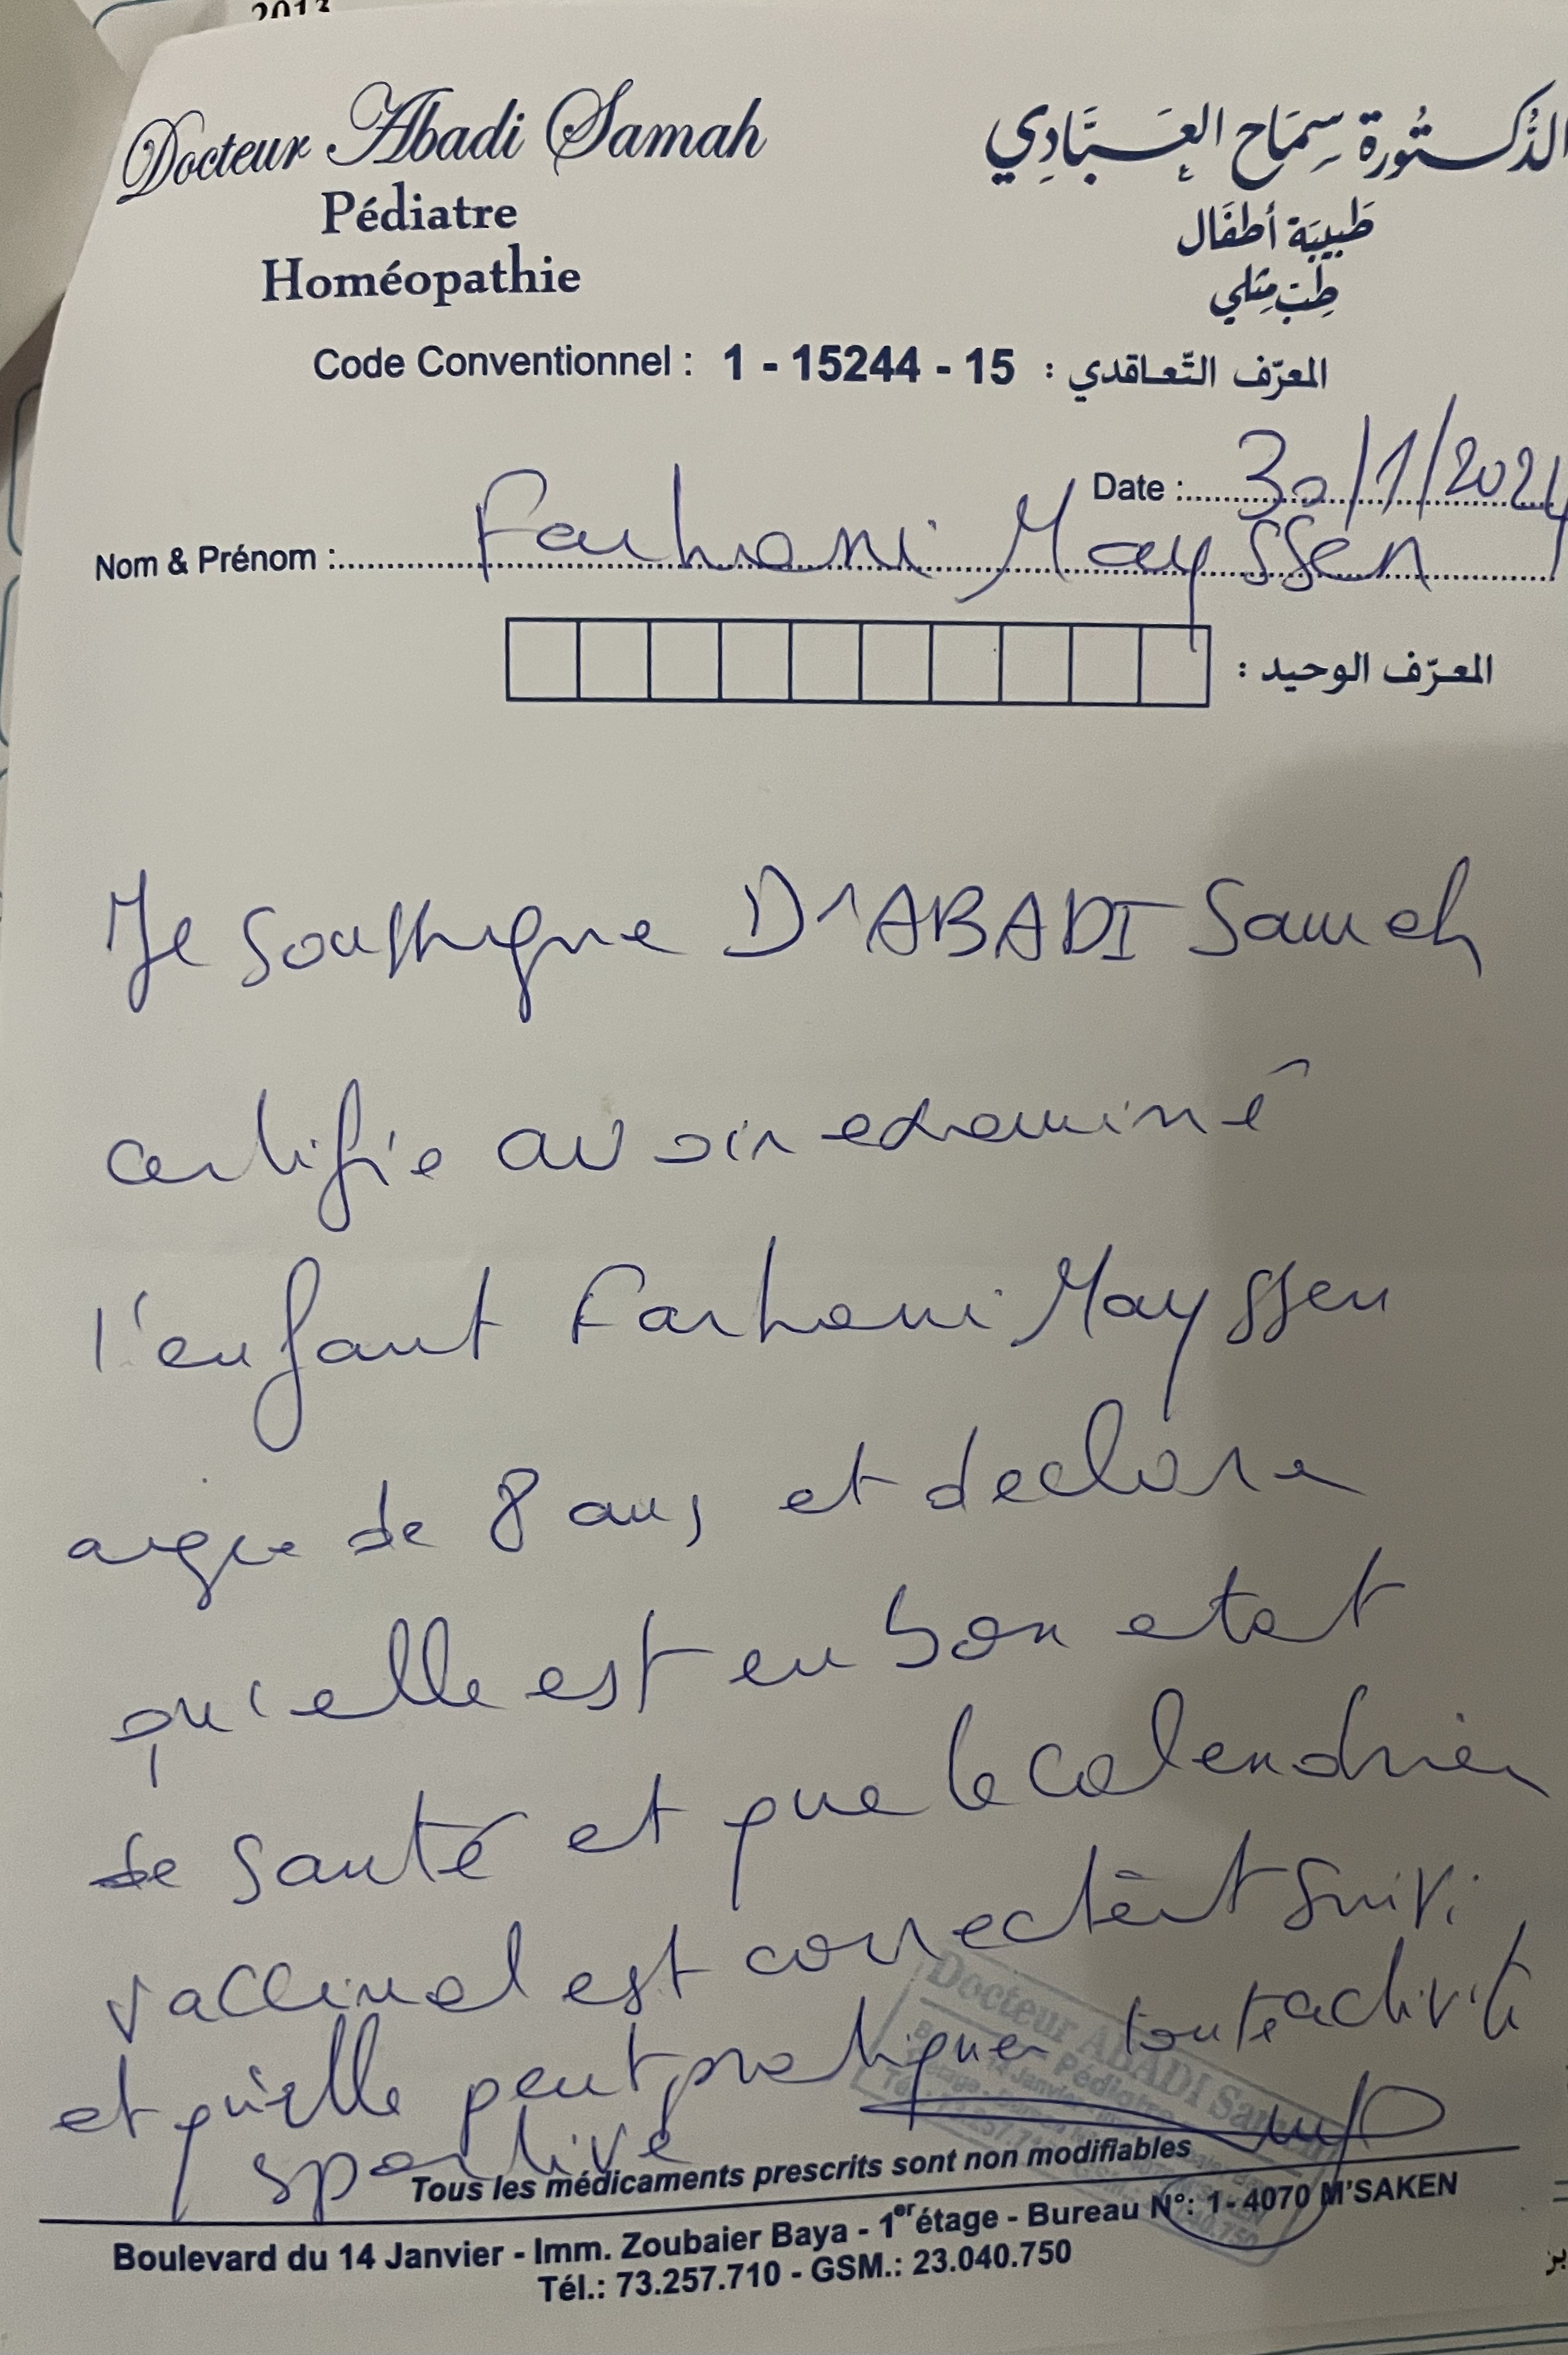 2013
Docteur Abadi Samah
الدّكتورة سِمَاح العَبَّادِي
Pédiatre
طَبيبَة أطفَال
Homéopathie
طِبّ مِثلي
Code Conventionnel : 1 - 15244 - 15 : المعرّف التّعاقدي
Date : 30/1/2024
Nom & Prénom : Farhani Mayssen
المعرّف الوحيد :
Je soussigne Dr ABADI Sameh
certifie avoir examiné
l'enfant Farhani Mayssen
agée de 8 ans et declare
qu'elle est en bon etat
de santé et que le calendrier
vaccinal est correctēt suivi
et qu'elle peut pratiquer toute activité
sportive
Docteur ABADI Samah
Pédiatre
Tous les médicaments prescrits sont non modifiables
Boulevard du 14 Janvier - Imm. Zoubaier Baya - 1er étage - Bureau N°: 1- 4070 M'SAKEN
Tél.: 73.257.710 - GSM.: 23.040.750